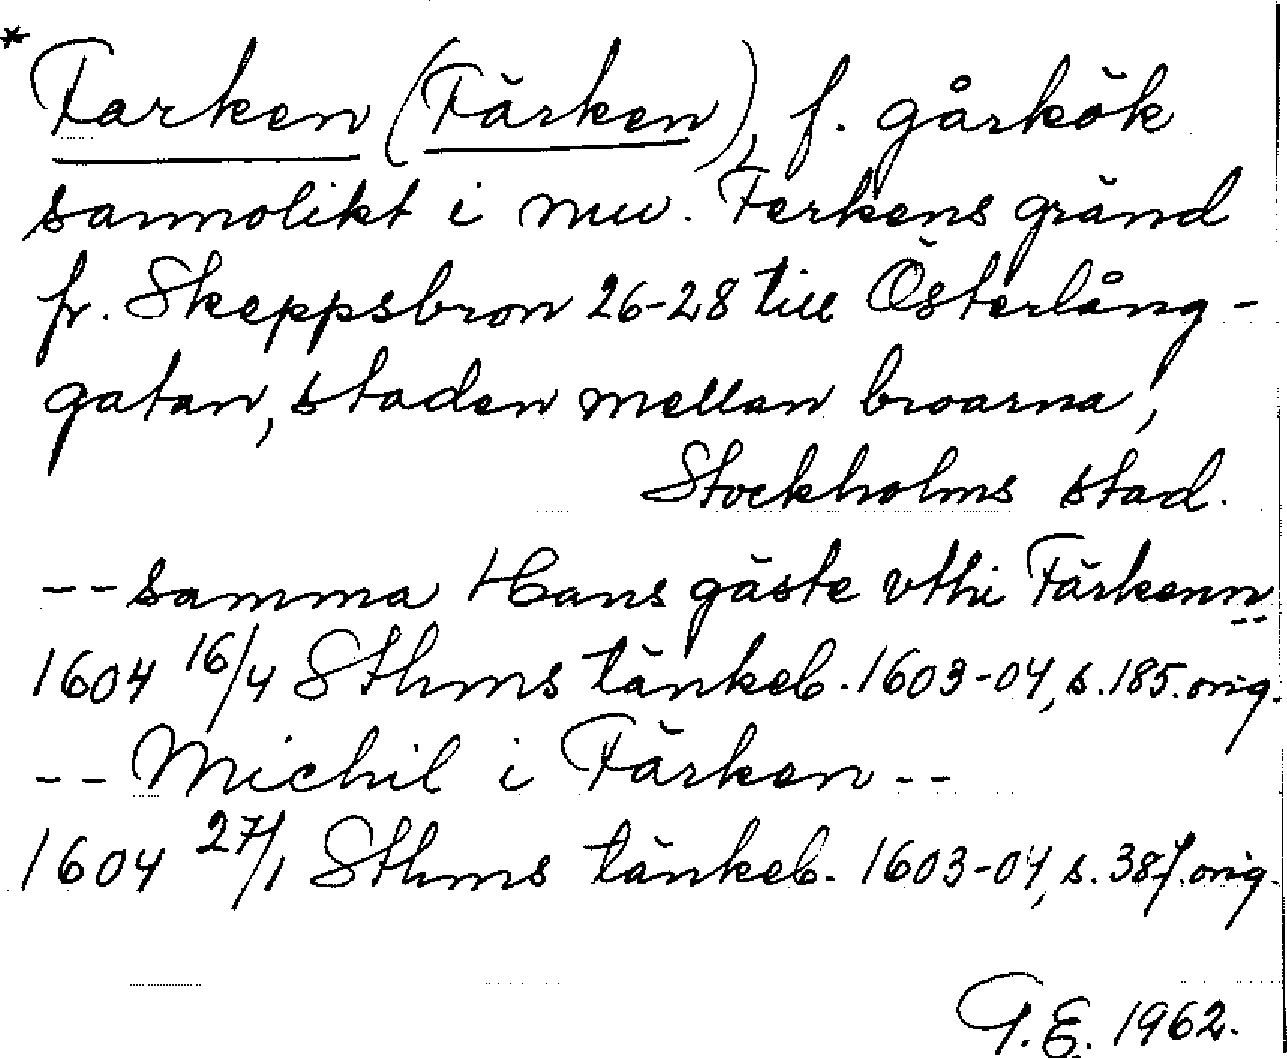 * Farken (Färken), f. gårkök
sannolikt i nuv. Ferkens gränd
fr. Skeppsbron 26-28 till Österlång-
gatan, staden mellan broarna,
Stockholms stad.
-- samma Hans gäste vthi Färkenn
1604 16/4 Sthms tänkeb. 1603-04, s. 185. orig.
-- Michil i Färken --
1604 27/1 Sthms tänkeb. 1603-04, s. orig.
G.E. 1962.